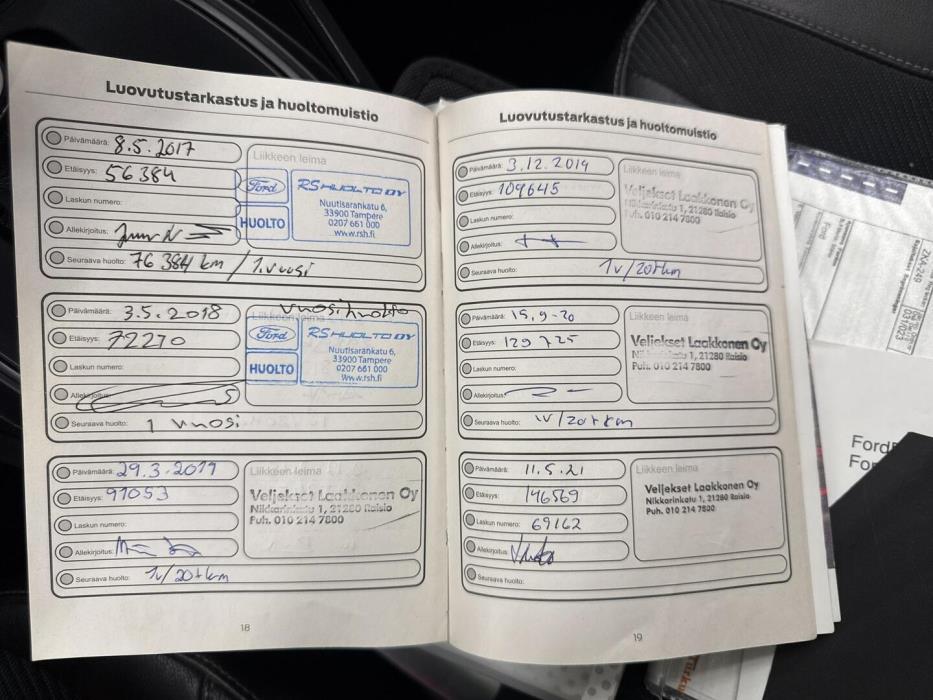 Luovutustarkastus ja huoltomuistio
Päivämäärä: 8.5.2017
Etäisyys: 56 384
Laskun numero:
Allekirjoitus:
Seuraava huolto: 76 384 km / 1.vuosi
Liikkeen leima
Ford
HUOLTO
RS HUOLTO OY
Nuutisarankatu 6,
33900 Tampere
0207 661 000
www.rsh.fi
Päivämäärä: 3.5.2018
Etäisyys: 72270
Laskun numero:
Allekirjoitus:
Seuraava huolto: 1 vuosi
vuosihuolto
Liikkeen leima
Ford
HUOLTO
RS HUOLTO OY
Nuutisarankatu 6,
33900 Tampere
0207 661 000
www.rsh.fi
Päivämäärä: 29.3.2019
Etäisyys: 91053
Laskun numero:
Allekirjoitus:
Seuraava huolto: 1v/20tkm
Liikkeen leima
Veljekset Laakkonen Oy
Nikkarinkatu 1, 21280 Raisio
Puh. 010 214 7800
18
Luovutustarkastus ja huoltomuistio
Päivämäärä: 3.12.2019
Etäisyys: 109645
Laskun numero:
Allekirjoitus:
Seuraava huolto: 1v/20tkm
Liikkeen leima
Veljekset Laakkonen Oy
Nikkarinkatu 1, 21280 Raisio
Puh. 010 214 7800
Päivämäärä: 15.9-20
Etäisyys: 129 725
Laskun numero:
Allekirjoitus:
Seuraava huolto: 1v/20tkm
Liikkeen leima
Veljekset Laakkonen Oy
Nikkarinkatu 1, 21280 Raisio
Puh. 010 214 7800
Päivämäärä: 11.5.21
Etäisyys: 146569
Laskun numero: 69162
Allekirjoitus:
Seuraava huolto:
Liikkeen leima
Veljekset Laakkonen Oy
Nikkarinkatu 1, 21280 Raisio
Puh. 010 214 7800
19
Ford
ZKA-249
Ford